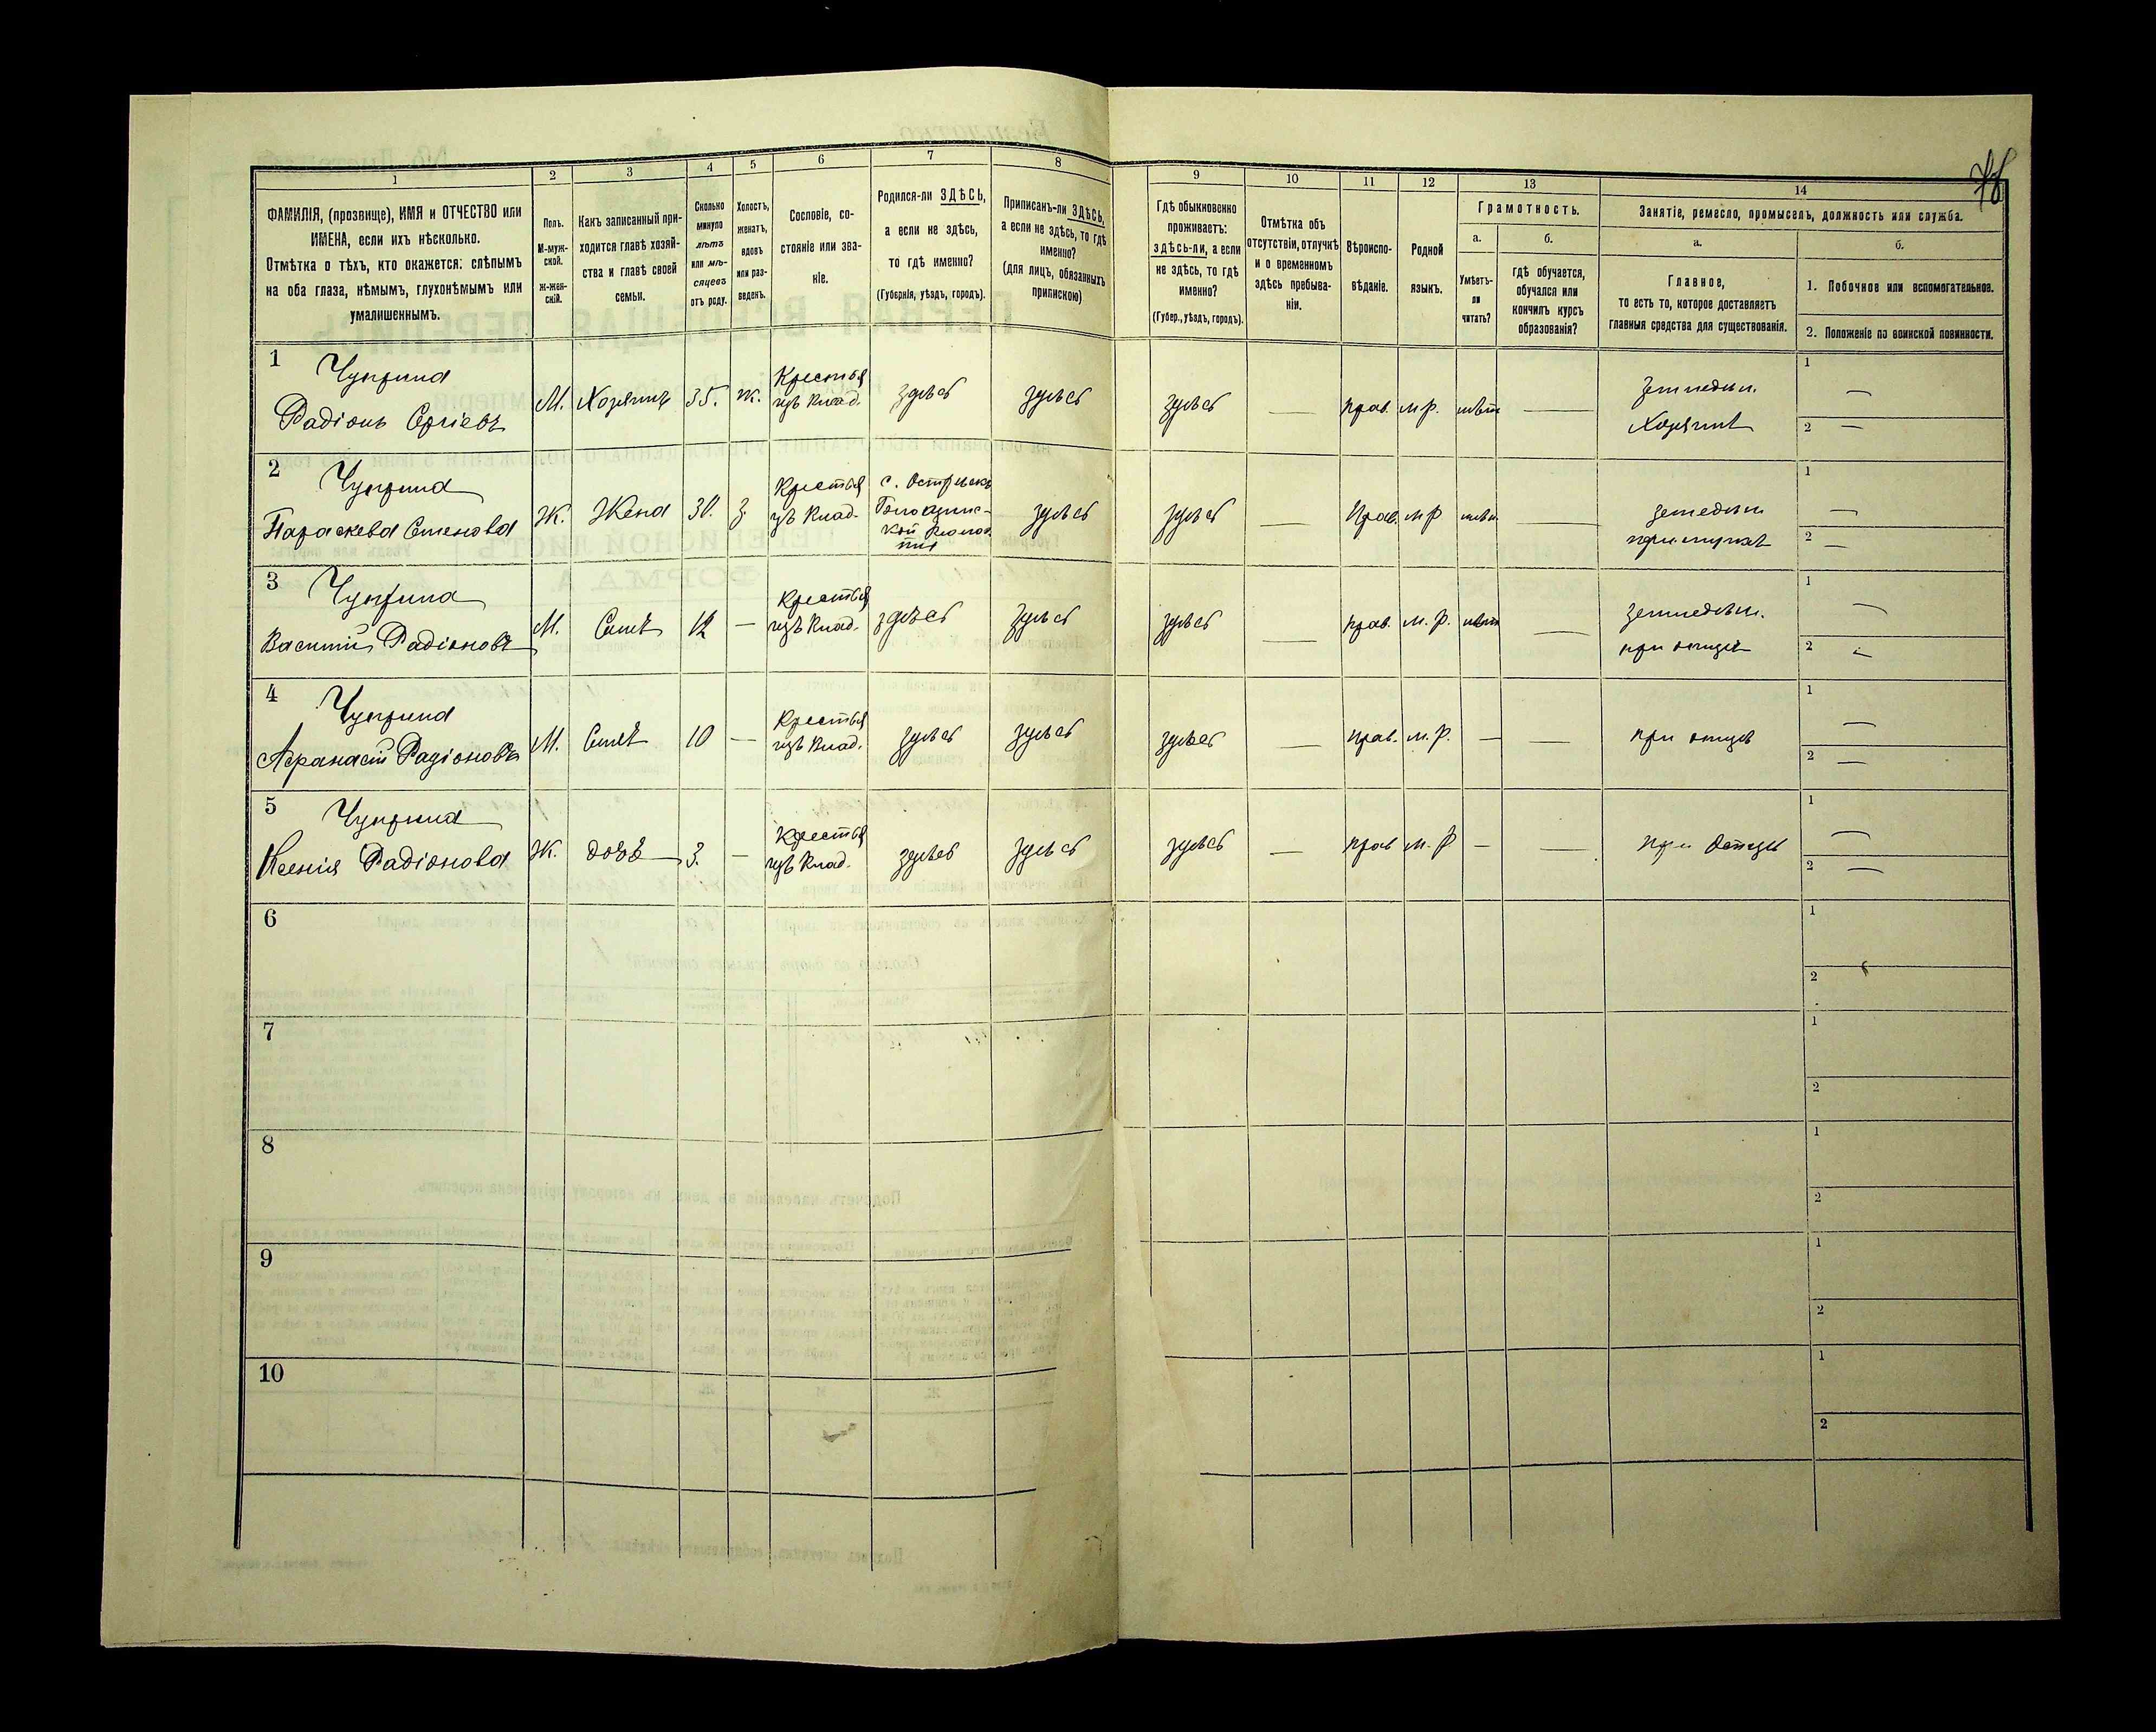 78
1
2
3
4
5
6
7
8
9
10
11
12
13
14
ФАМИЛІЯ, (прозвище), ИМЯ и ОТЧЕСТВО или
ИМЕНА, если ихъ нѣсколько.
Отмѣтка о тѣхъ, кто окажется: слѣпымъ
на оба глаза, нѣмымъ, глухонѣмымъ или
умалишеннымъ.
Полъ.
М-муж-
ской.
Ж-жен-
скій.
Какъ записанный при-
ходится главѣ хозяй-
ства и главѣ своей
семьи.
Сколько
минуло
лѣтъ
или мѣ-
сяцевъ
отъ роду.
Холостъ,
женатъ,
вдовъ
или раз-
веденъ.
Сословіе, со-
стояніе или зва-
ніе.
Родился-ли ЗДѢСЬ,
а если не здѣсь,
то гдѣ именно?
(Губернія, уѣздъ, городъ).
Приписанъ-ли ЗДѢСЬ,
а если не здѣсь, то гдѣ
именно?
(для лицъ, обязанныхъ
припискою)
Гдѣ обыкновенно
проживаетъ:
здѣсь-ли, а если
не здѣсь, то гдѣ
именно?
(Губер., уѣздъ, городъ).
Отмѣтка объ
отсутствіи, отлучкѣ
и о временномъ
здѣсь пребыва-
ніи.
Вѣроиспо-
вѣданіе.
Родной
языкъ.
Грамотность.
а.
Умѣетъ-
ли
читать?
б.
гдѣ обучается,
обучался или
кончилъ курсъ
образованія?
Занятіе, ремесло, промыселъ, должность или служба.
а.
Главное,
то есть то, которое доставляетъ
главныя средства для существованія.
б.
1. Побочное или вспомогательное.
2. Положеніе по воинской повинности.
1
Чуприна
Радіонъ Сергіевъ
М.
Хозяинъ
35.
ж.
Крестья
изъ Влад.
здѣсь
здѣсь
здѣсь
—
прав.
м.р.
нѣтъ
—
Земледѣл.
Хозяинъ
1 —
2 —
2
Чуприна
Параскева Семенова
Ж.
Жена
30.
З.
Крестья
изъ Влад.
с.
здѣсь
здѣсь
—
Прав.
м.р
нѣт.
—
земледѣл
при мужѣ
1 —
2 —
3
Чуприна
Василій Радіоновъ
М.
Сынъ
12
—
Крестья
изъ Влад.
здѣсь
здѣсь
здѣсь
—
прав.
м.р.
нѣтъ
—
земледѣл.
при отцѣ
1 —
2 —
4
Чуприна
Афанасій Радіоновъ
М.
Сынъ
10
—
Крестья
изъ Влад.
здѣсь
здѣсь
здѣсь
—
прав.
м.р.
—
—
при отцѣ
1 —
2 —
5
Чуприна
Ксенія Радіонова
Ж.
дочь
3.
—
Крестья
изъ Влад.
здѣсь
здѣсь
здѣсь
—
прав
м.р
—
—
при Отцѣ
1 —
2 —
6
1
2
7
1
2
8
1
2
9
1
2
10
1
2